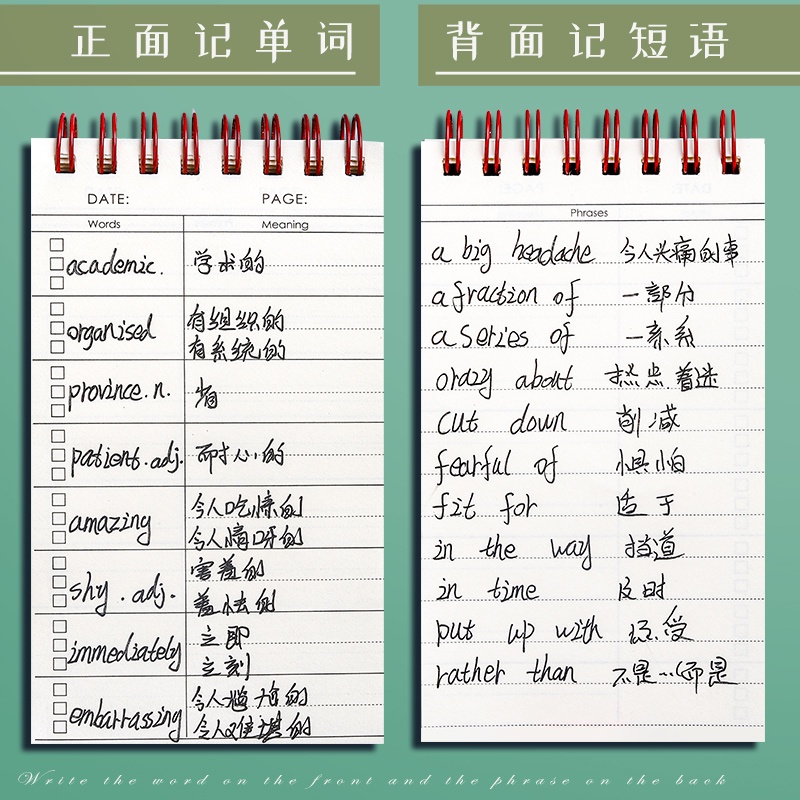 正面记单词
背面记短语
DATE: PAGE:
Words Meaning
academic. 学术的
organised 有组织的
有系统的
province.n. 省
patient.adj. 耐心的
amazing 令人吃惊的
令人惊呀的
shy.adj. 害羞的
羞怯的
immediately 立即
立刻
embarrassing 令人尴尬的
令人难堪的
Phrases
a big headache 令人头痛的事
a fraction of 一部分
a series of 一系系
crazy about 热点着迷
cut down 削减
fearful of 惧怕
fit for 适于
in the way 挡道
in time 及时
put up with 忍受
rather than 不是…而是
Write the word on the front and the phrase on the back